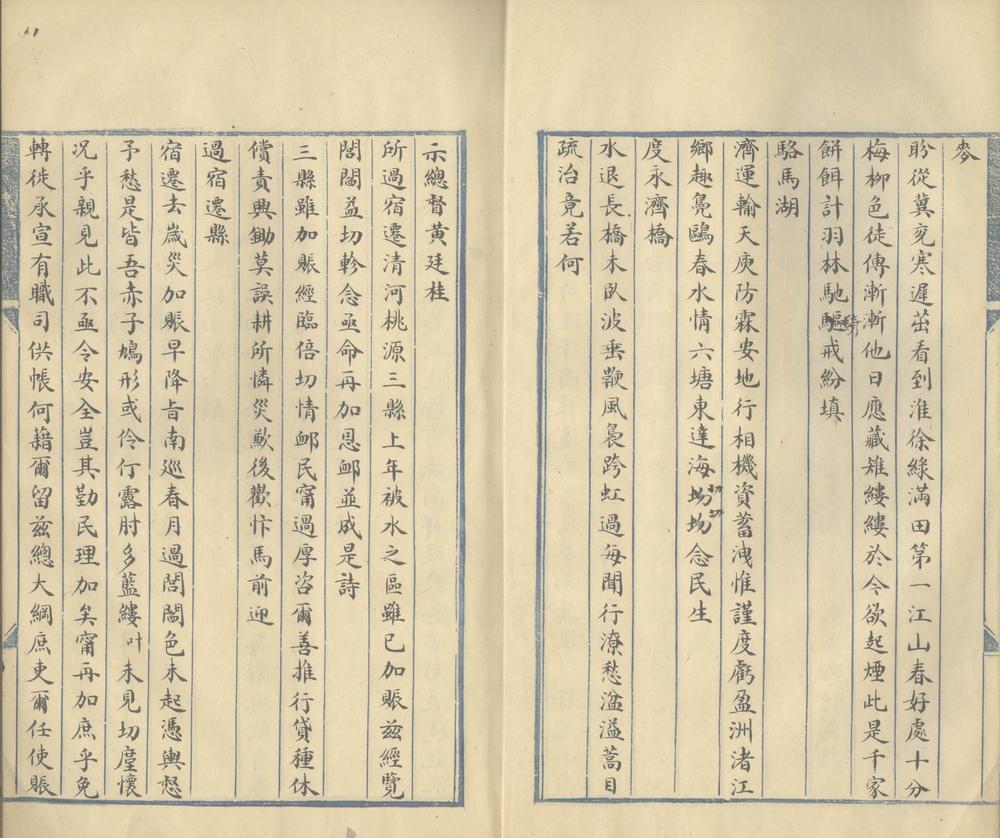 麥
盼從冀兖寒遲茁看到淮徐綠滿田第一江山春好處十分
梅柳色徒傳漸漸他日應藏雉縷縷於今欲起煙此是千家
餅餌計羽林馳驅騎戒紛填
駱馬湖
濟運輸天庾防霖安地行相機資蓄洩惟謹度虧盈洲渚江
鄉趣鳧鷗春水情六塘東達海坳坳念民生
度永濟橋
水退長橋未臥波垂鞭風裊跨虹過每聞行潦愁湓溢蒿目
疏治竟若何
示總督黄廷桂
所過宿遷清河桃源三縣上年被水之區雖已加賑茲經覽
閭閻益切軫念亟命再加恩卹並成是詩
三縣雖加賑經臨倍切情卹民甯過厚咨爾善推行貸種休
償責興鋤莫誤耕所憐災歉後歡忭馬前迎
過宿遷縣
宿遷去嵗災加賑早降㫖南巡春月過閭閻色未起憑輿惄
予愁是皆吾赤子鳩形或伶仃露肘多藍縷叶未見切廑懷
况乎親見此不亟令安全豈其勤民理加矣甯再加庶乎免
轉徙承宣有職司供帳何藉爾留茲總大綱庶吏爾任使賑